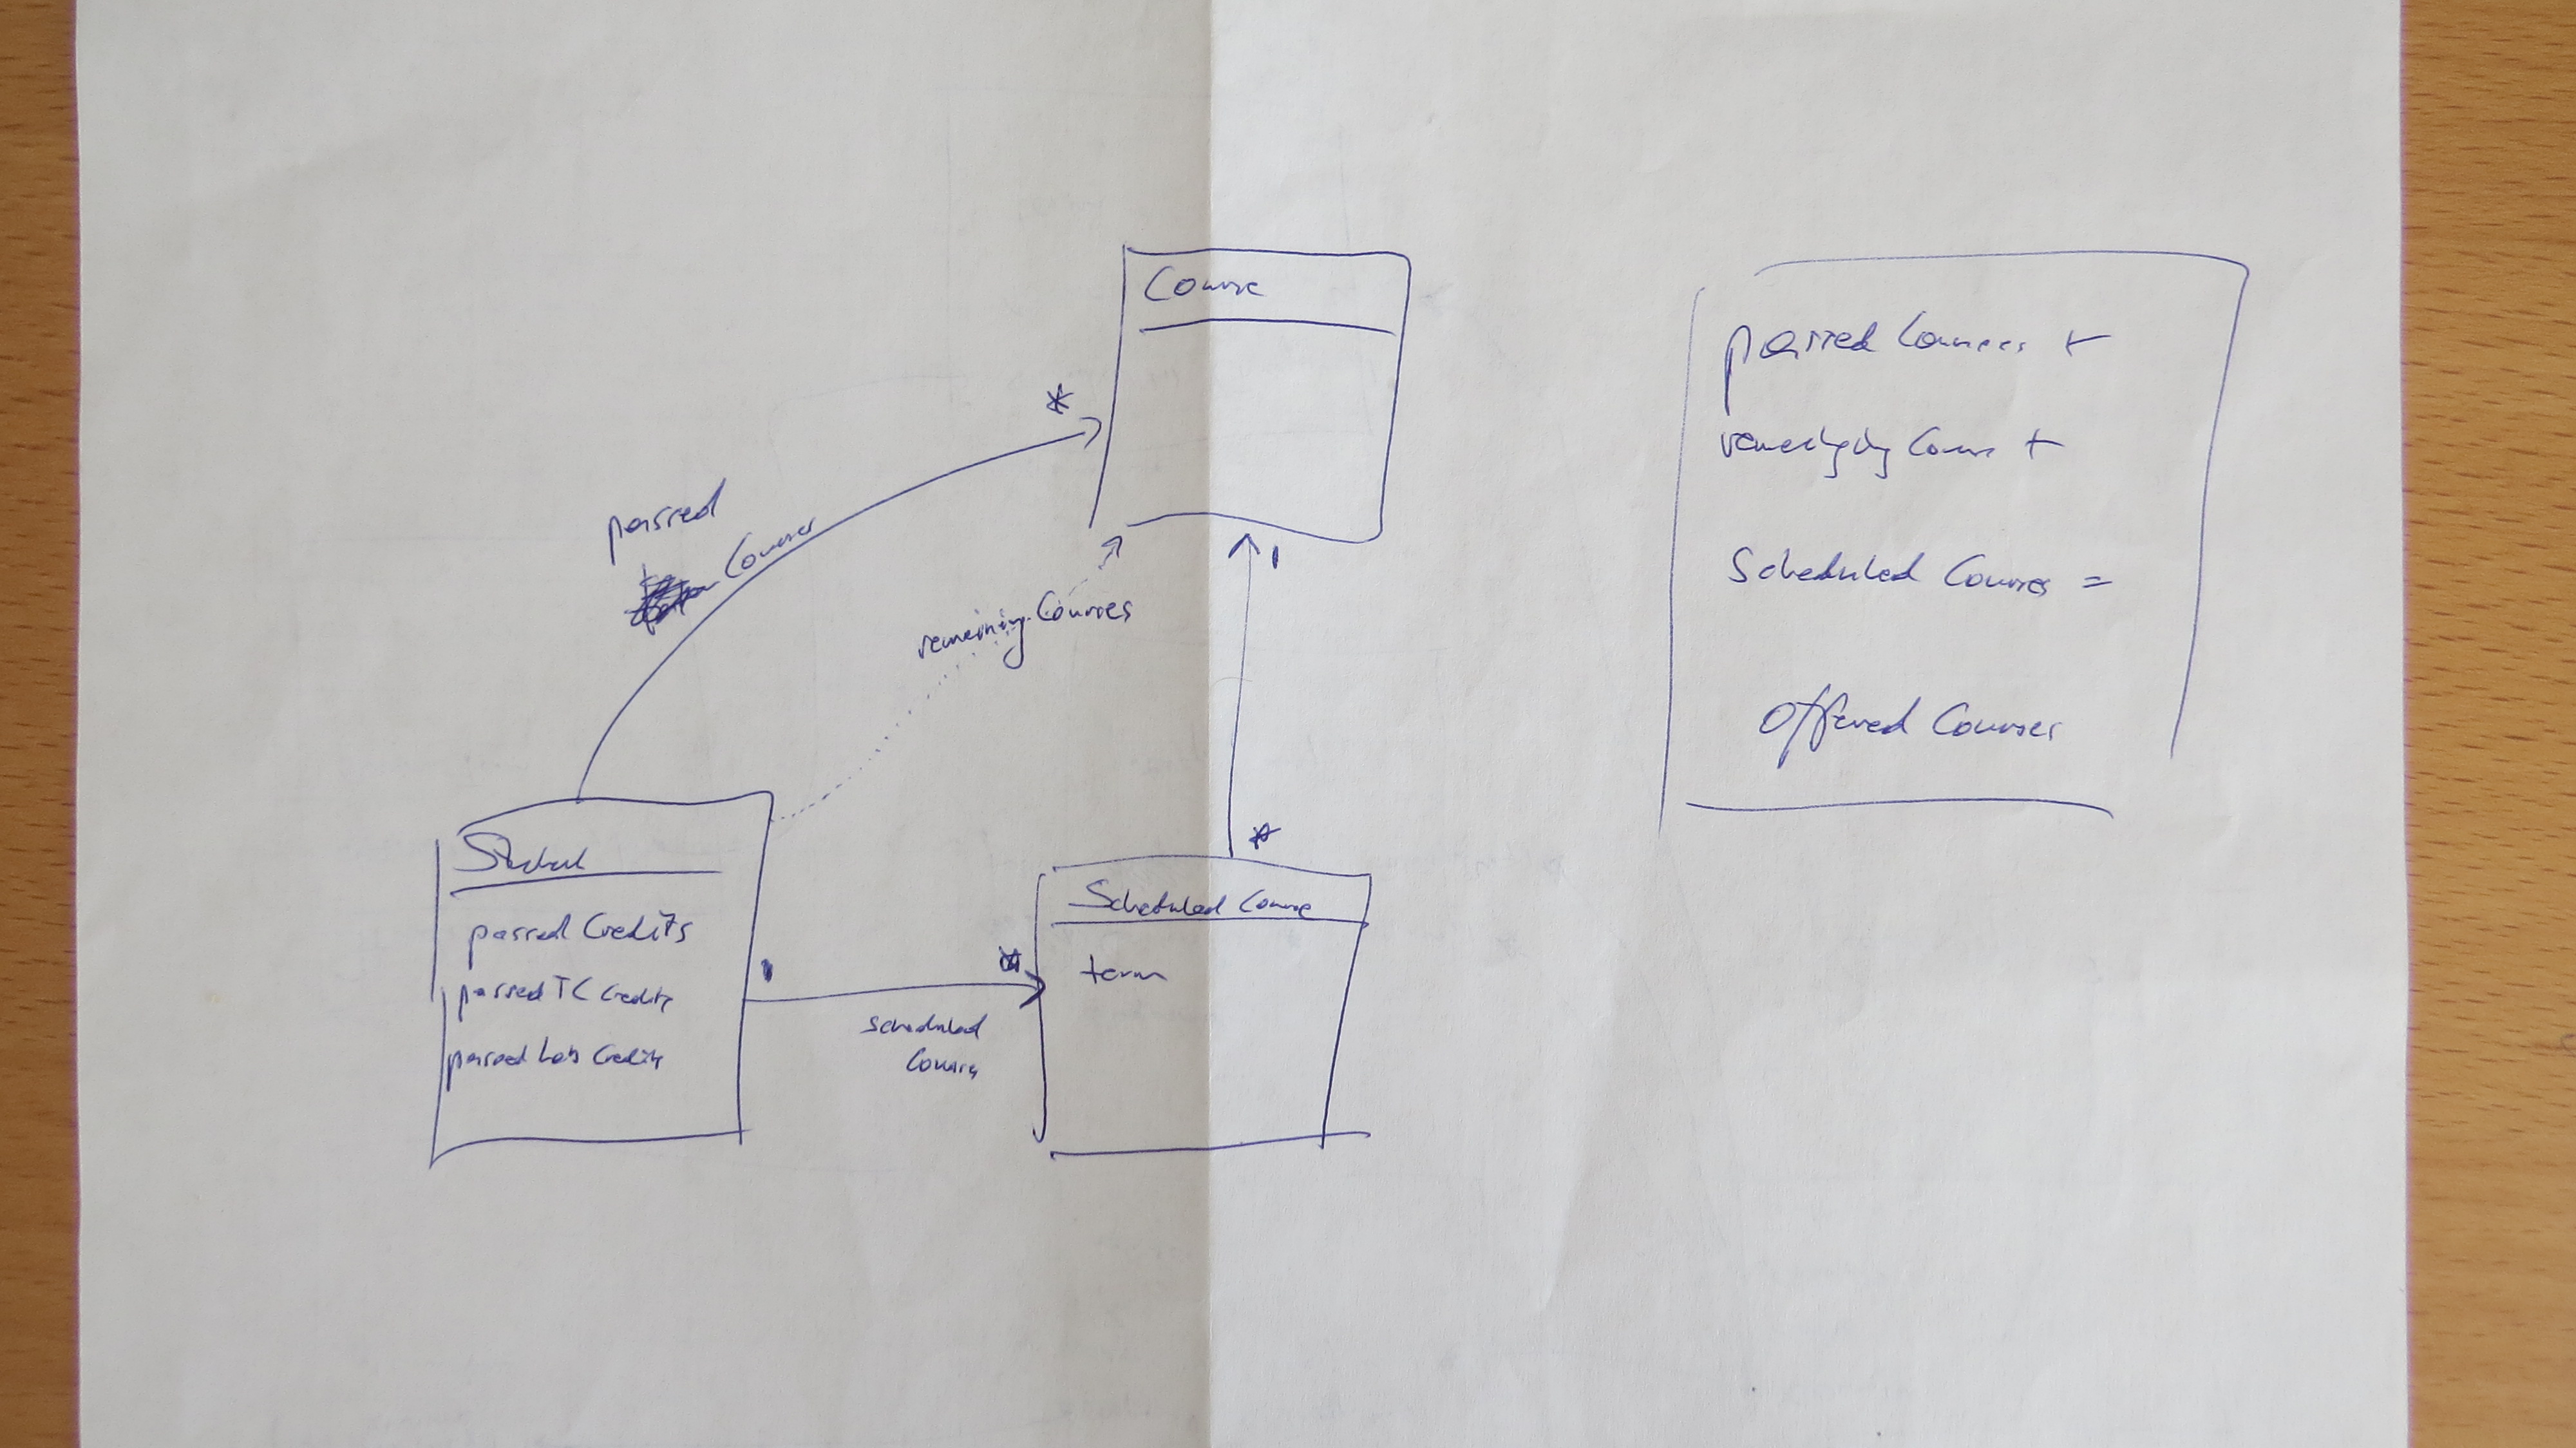 Course
*
passed
Courses
remaining Courses
1
*
Student
passed Credits
passed TC Credits
passed Lab Credits
1
*
scheduled
Courses
Scheduled Course
term
passed Courses +
remaining Courses +
Scheduled Courses =
offered Courses